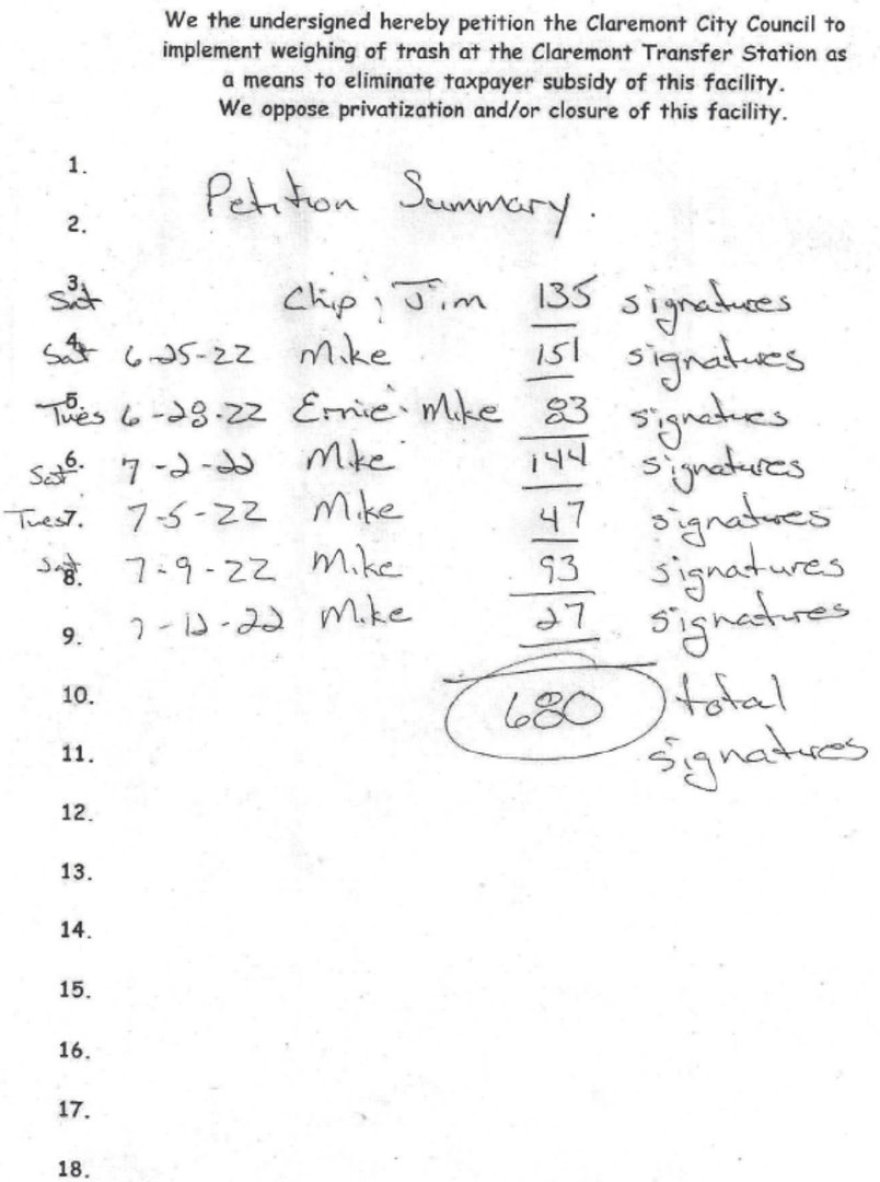 We the undersigned hereby petition the Claremont City Council to
implement weighing of trash at the Claremont Transfer Station as
a means to eliminate taxpayer subsidy of this facility.
We oppose privatization and/or closure of this facility.
1.
Petition Summary.
2.
3. Sat Chip ; Jim 135 signatures
4. Sat 6-25-22 Mike 151 signatures
5. Tues 6-28-22 Ernie Mike 83 signatures
6. Sat 7-2-22 Mike 144 signatures
7. Tues 7-5-22 Mike 47 signatures
8. Sat 7-9-22 Mike 93 signatures
9. 7-12-22 Mike 27 signatures
10. 680 total
11. signatures
12.
13.
14.
15.
16.
17.
18.